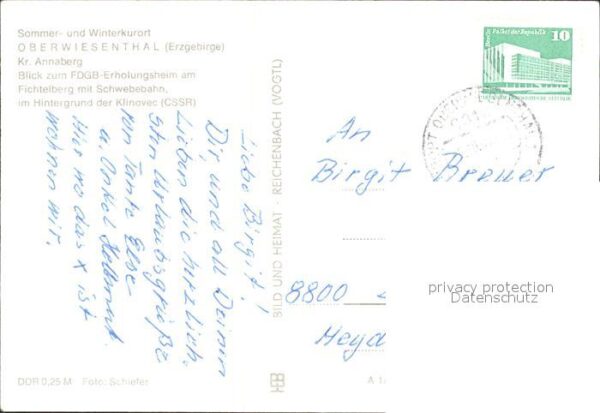 Sommer- und Winterkurort
OBERWIESENTHAL (Erzgebirge)
Kr. Annaberg
Blick zum FDGB-Erholungsheim am
Fichtelberg mit Schwebebahn,
im Hintergrund der Klinovec (CSSR)
Liebe Birgit!
Dir und all Deinen
Lieben die herzlich-
sten Urlaubsgrüße
von Tante Else
u. Onkel Hellmut.
Hier wo das x ist
wohnen wir.
BILD UND HEIMAT · REICHENBACH (VOGTL)
Berlin Palast der Republik
10
An
Birgit Breuer
8800
Heyd
privacy protection
Datenschutz
DDR 0,25 M Foto: Schiefer
A 1/